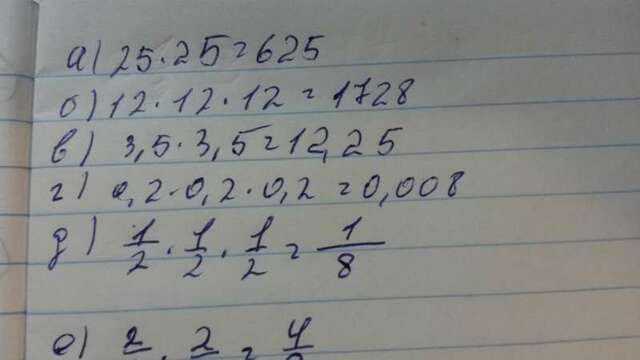 а) 25·25=625
б) 12·12·12=1728
в) 3,5·3,5=12,25
г) 0,2·0,2·0,2=0,008
д) 1/2·1/2·1/2=1/8
е) 2 · 2 = 4